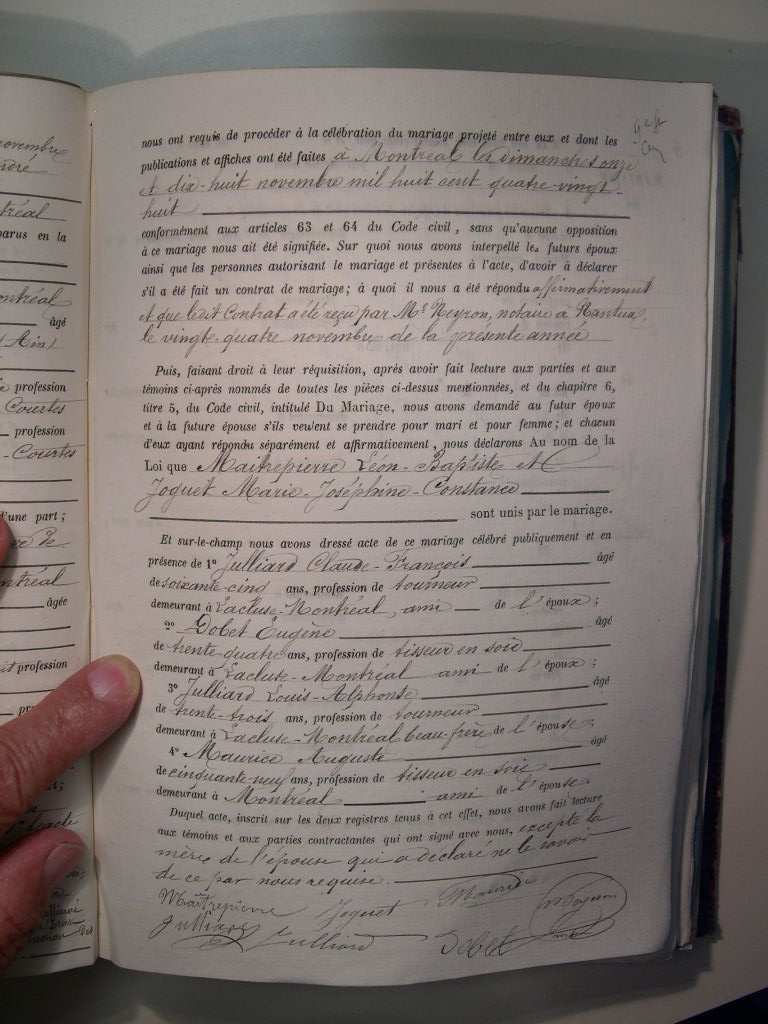 novembre
nous ont requis de procéder à la célébration du mariage projeté entre eux et dont les
publications et affiches ont été faites à Montréal les dimanches onze
et dix-huit novembre mil huit cent quatre-vingt-
huit
conformément aux articles 63 et 64 du Code civil, sans qu'aucune opposition
à ce mariage nous ait été signifiée. Sur quoi nous avons interpellé les futurs époux
ainsi que les personnes autorisant le mariage et présentes à l'acte, d'avoir à déclarer
s'il a été fait un contrat de mariage; à quoi il nous a été répondu affirmativement
et que ledit contrat a été reçu par Me Neyron, notaire à Nantua,
le vingt-quatre novembre de la présente année
Puis, faisant droit à leur réquisition, après avoir fait lecture aux parties et aux
témoins ci-après nommés de toutes les pièces ci-dessus mentionnées, et du chapitre 6,
titre 5, du Code civil, intitulé Du Mariage, nous avons demandé au futur époux
et à la future épouse s'ils veulent se prendre pour mari et pour femme; et chacun
d'eux ayant répondu séparément et affirmativement, nous déclarons Au nom de la
Loi que Maitrepierre Léon-Baptiste et
Joguet Marie-Joséphine-Constance
sont unis par le mariage.
Et sur-le-champ nous avons dressé acte de ce mariage célébré publiquement et en
présence de 1° Julliard Claude-François âgé
de soixante-cinq ans, profession de tourneur
demeurant à Lacluse-Montréal, ami de l'époux;
2° Gobet Eugène âgé
de trente-quatre ans, profession de tisseur en soie
demeurant à Lacluse-Montréal ami de l'époux;
3° Julliard Louis-Alphonse âgé
de trente-trois ans, profession de tourneur
demeurant à Lacluse-Montréal beau-frère de l'épouse;
4° Maurice Auguste âgé
de cinquante-neuf ans, profession de tisseur en soie
demeurant à Montréal ami de l'épouse
Duquel acte, inscrit sur les deux registres tenus à cet effet, nous avons fait lecture
aux témoins et aux parties contractantes qui ont signé avec nous, excepté la
mère de l'épouse qui a déclaré ne le savoir
de ce par nous requise.
Maitrepierre Joguet Maurice
Julliard Julliard Gobet